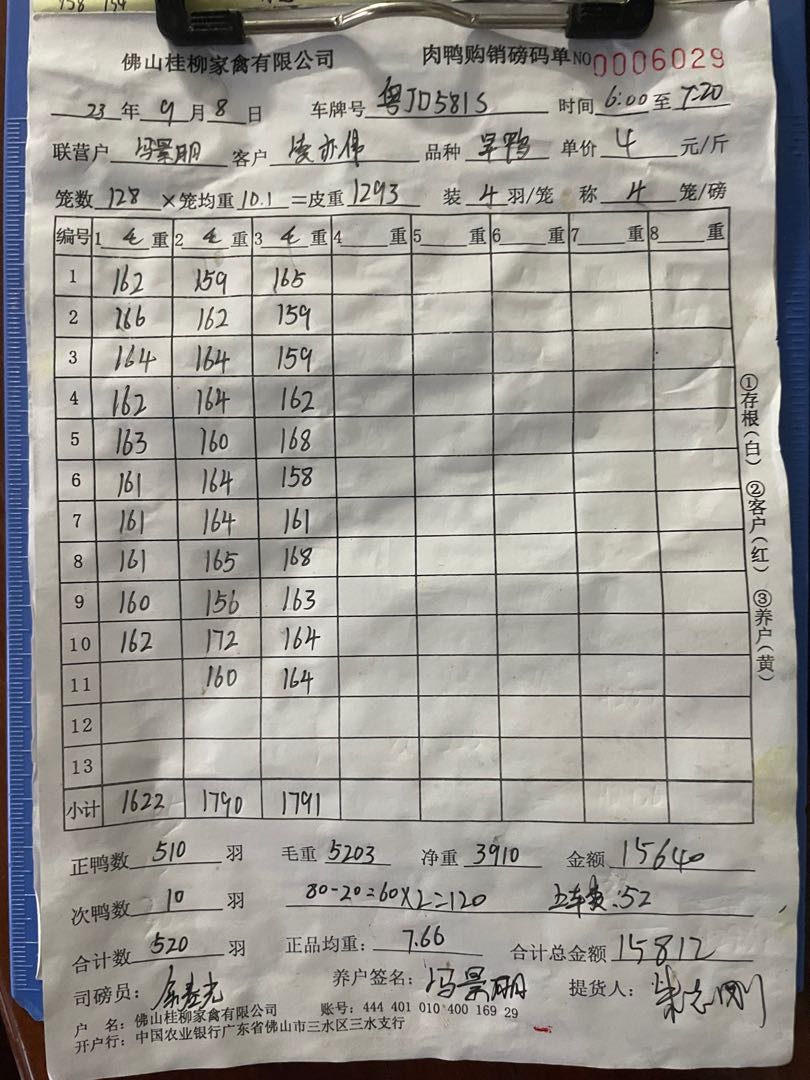 158 154
佛山桂柳家禽有限公司 肉鸭购销磅码单NO 0006029
23 年 9 月 8 日 车牌号 粤JD581S 时间 6:00 至 7:20
联营户 冯景明 客户 凌亦伟 品种 旱鸭 单价 4 元/斤
笼数 128 ×笼均重 10.1 =皮重 1293 装 4 羽/笼 称 4 笼/磅
编号 1 毛 重 2 毛 重 3 毛 重 4 重 5 重 6 重 7 重 8 重
1 162 159 165
2 166 162 159
3 164 164 159
4 162 164 162
5 163 160 168
6 161 164 158
7 161 164 161
8 161 165 168
9 160 156 163
10 162 172 164
11 160 164
12
13
小计 1622 1790 1791
正鸭数 510 羽 毛重 5203 净重 3910 金额 15640
次鸭数 10 羽 80-20=60×2=120 车费:52
合计数 520 羽 正品均重: 7.66 合计总金额 15812
司磅员: 养户签名: 冯景明 提货人:
户 名: 佛山桂柳家禽有限公司 账号: 444 401 010 400 169 29
开户行: 中国农业银行广东省佛山市三水区三水支行
①存根(白) ②客户(红) ③养户(黄)